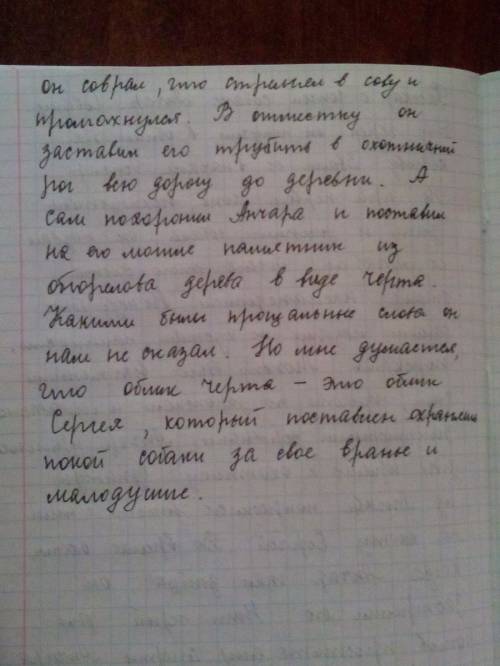 он соврал, что стрелял в сову и
промахнулся. В отместку он
заставил его трубить в охотничий
рог всю дорогу до деревни. А
сам похоронил Анчара и поставил
на его могиле памятник из
обгорелова дерева в виде черта.
Какими были прощальные слова он
нам не сказал. Но мне думается,
что облик черта – это облик
Сергея, который поставлен охранять
покой собаки за свое вранье и
малодушие.